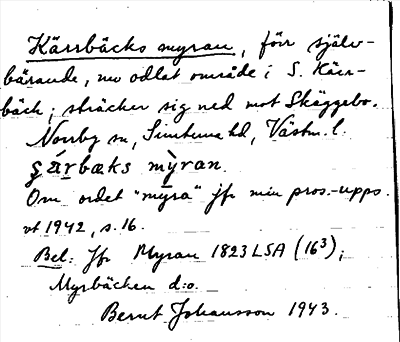 Kärrbäcks myran, förr själv-
bärande, nu odlat område i S. Kärr-
bäck; sträcker sig ned mot Skäggebo.
Norrby sn, Simtuna hd, Västm. l.
çárbæks mỳran.
Om ordet "myra" jfr min pros.-upps.
vt 1942, s. 16.
Bel: Jfr Myran 1823 LSA (16³);
Myrbäcken d:o.
Bernt Johansson 1943.